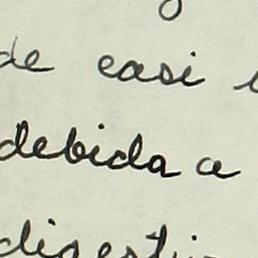 de casi
debida a